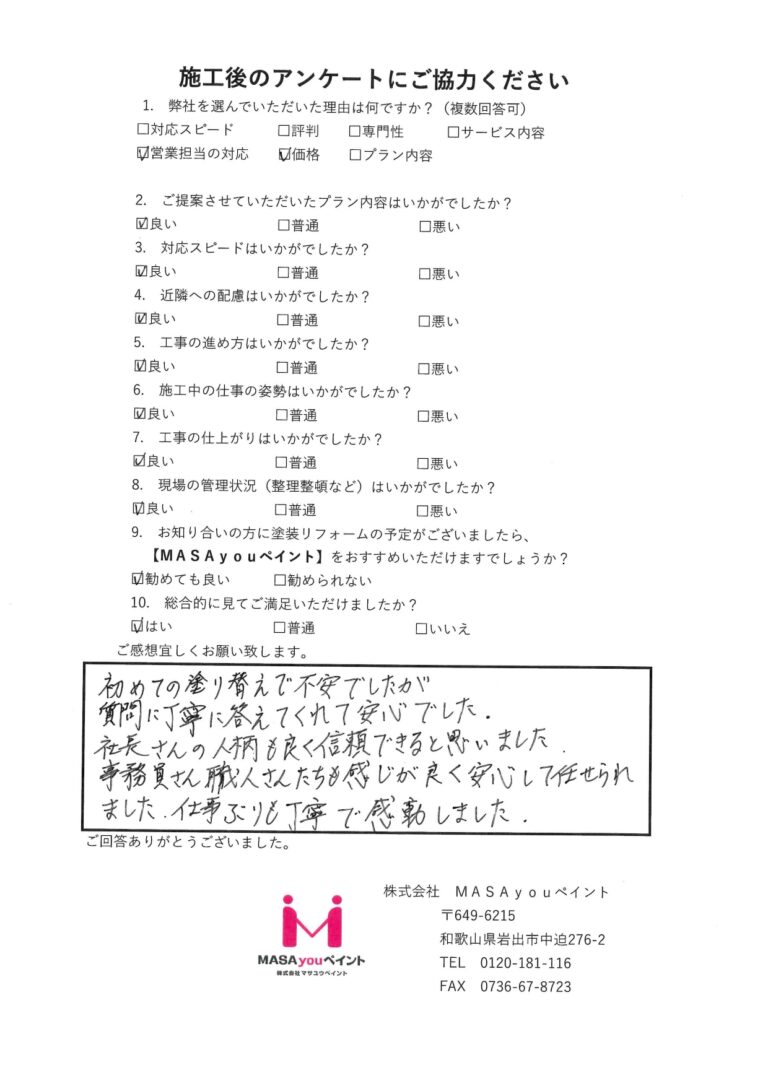 施工後のアンケートにご協力ください
1. 弊社を選んでいただいた理由は何ですか？（複数回答可）
□対応スピード □評判 □専門性 □サービス内容
☑営業担当の対応 ☑価格 □プラン内容
2. ご提案させていただいたプラン内容はいかがでしたか？
☑良い □普通 □悪い
3. 対応スピードはいかがでしたか？
☑良い □普通 □悪い
4. 近隣への配慮はいかがでしたか？
☑良い □普通 □悪い
5. 工事の進め方はいかがでしたか？
☑良い □普通 □悪い
6. 施工中の仕事の姿勢はいかがでしたか？
☑良い □普通 □悪い
7. 工事の仕上がりはいかがでしたか？
☑良い □普通 □悪い
8. 現場の管理状況（整理整頓など）はいかがでしたか？
☑良い □普通 □悪い
9. お知り合いの方に塗装リフォームの予定がございましたら、
【ＭＡＳＡｙｏｕペイント】をおすすめいただけますでしょうか？
☑勧めても良い □勧められない
10. 総合的に見てご満足いただけましたか？
☑はい □普通 □いいえ
ご感想宜しくお願い致します。
初めての塗り替えで不安でしたが
質問に丁寧に答えてくれて安心でした.
社長さんの人柄も良く信頼できると思いました.
事務員さん職人さんたちも感じが良く安心して任せられ
ました.仕事ぶりも丁寧で感動しました.
ご回答ありがとうございました。
株式会社 ＭＡＳＡｙｏｕペイント
〒649-6215
和歌山県岩出市中迫276-2
TEL 0120-181-116
FAX 0736-67-8723
MASAyouペイント
株式会社マサユウペイント